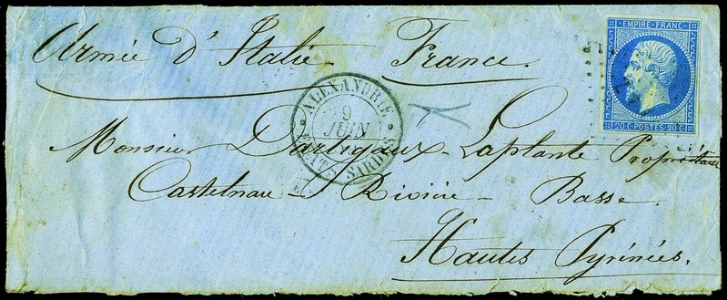 Armée d'Italie France
EMPIRE FRANC
20 C POSTES 20 C
ALEXANDRIE
9
JUIN
ETATS SARDES
Monsieur Dartigaux-Laplante Propriétaire
Castelnau-Rivière-Basse
Hautes Pyrénées.